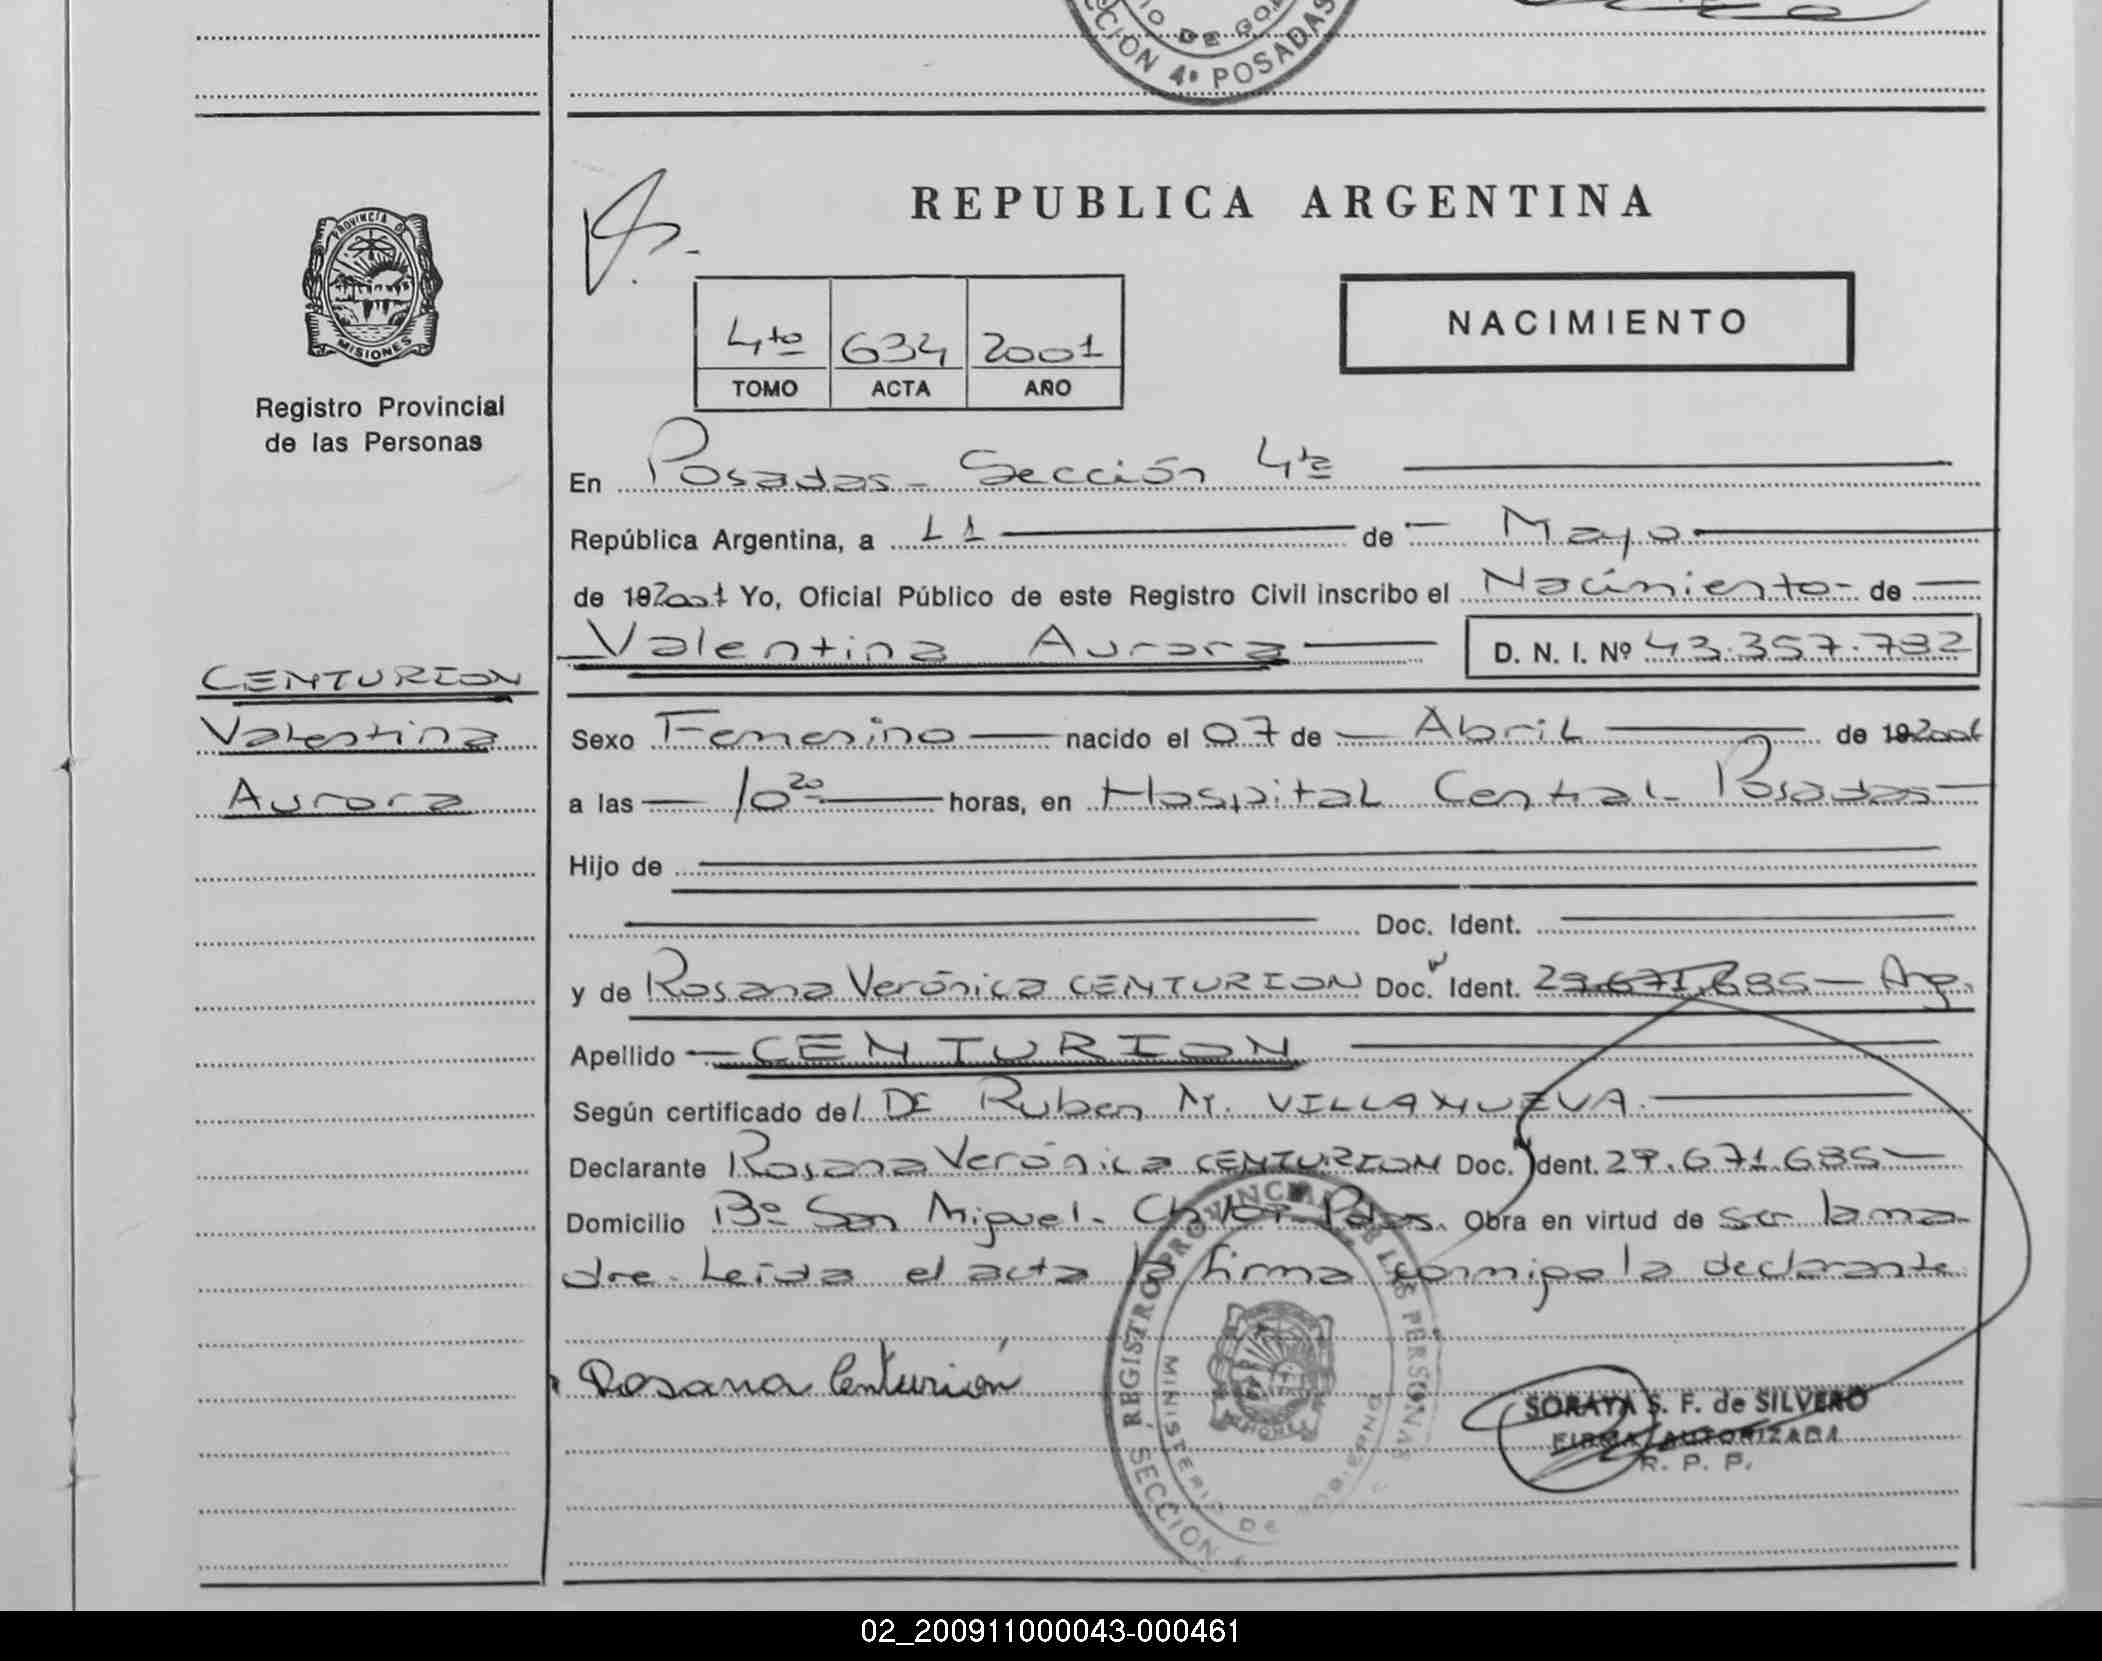 CCIÓN 4ª POSADAS
REPUBLICA ARGENTINA
PROVINCIA DE
MISIONES
Registro Provincial
de las Personas
4to 634 2001
TOMO ACTA AÑO
NACIMIENTO
En Posadas - Sección 4ta
República Argentina, a 11 de Mayo
de 192001 Yo, Oficial Público de este Registro Civil inscribo el Nacimiento de
Valentina Aurora D. N. I. Nº 43.357.782
CENTURION
Valentina
Aurora
Sexo Femenino nacido el 07 de Abril de 192001
a las 10 20 horas, en Hospital Central Posadas
Hijo de
Doc. Ident.
y de Rosana Verónica CENTURION Doc. Ident. 29.671.685 - Arg.
Apellido CENTURION
Según certificado del Dr Ruben M. VILLANUEVA.
Declarante Rosana Verónica CENTURION Doc. Ident. 29.671.685
Domicilio Bº San Miguel - Obra en virtud de ser la ma
dre. Leída el acta la firma conmigo la declarante
Rosana Centurión
REGISTRO PROVINCIAL DE LAS PERSONAS
MINISTERIO DE GOBIERNO
SECCIÓN
SORAYA S. F. de SILVERO
FIRMA AUTORIZADA
R. P. P.
02_200911000043-000461